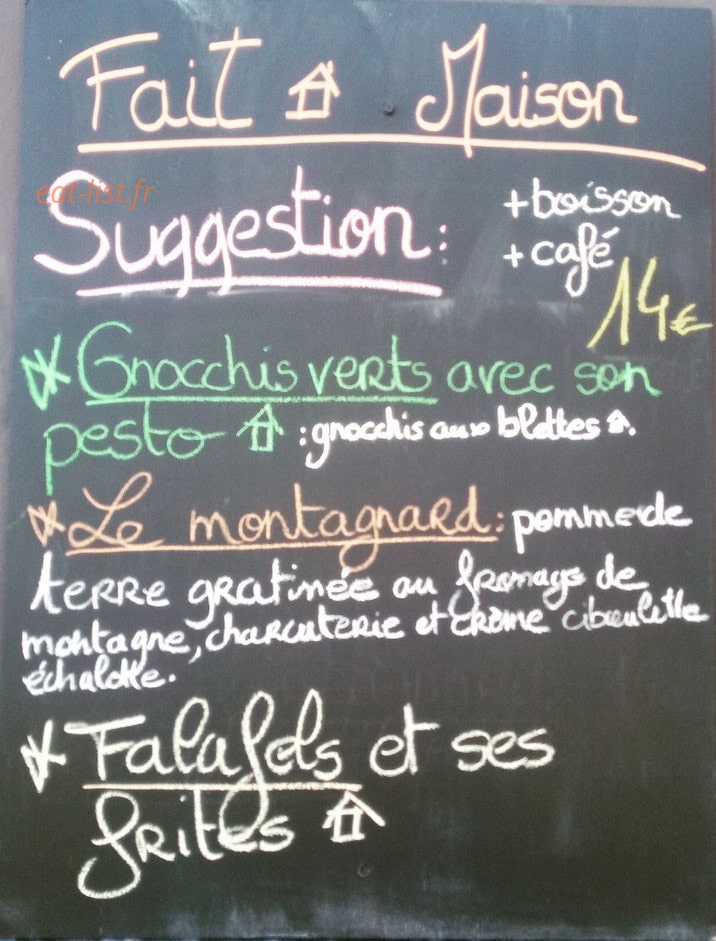 Fait Maison
eat-list.fr
Suggestion :
+ boisson
+ café
14€
Gnocchis verts avec son
pesto : gnocchis aux blettes.
Le montagnard : pomme de
terre gratinée au fromage de
montagne, charcuterie et crème ciboulette
échalotte.
Falafels et ses
frites